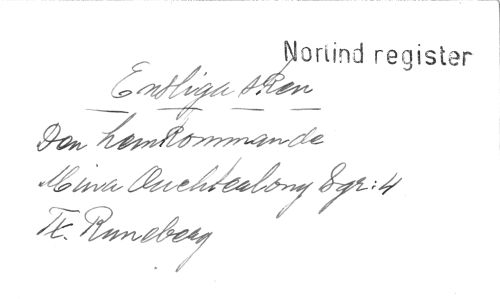 Norlind register
Endliga sken
Den hemkommande
Mina Auchterlony Sgr: 4
Tx. Runeberg